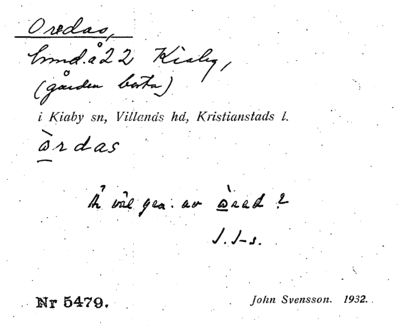 Oredas,
å 22 Kiaby,
(gården borta)
i Kiaby sn, Villands hd, Kristianstads l.
àrdas
Är väl gen. av ?
J. S-s.
Nr 5479. John Svensson. 1932.